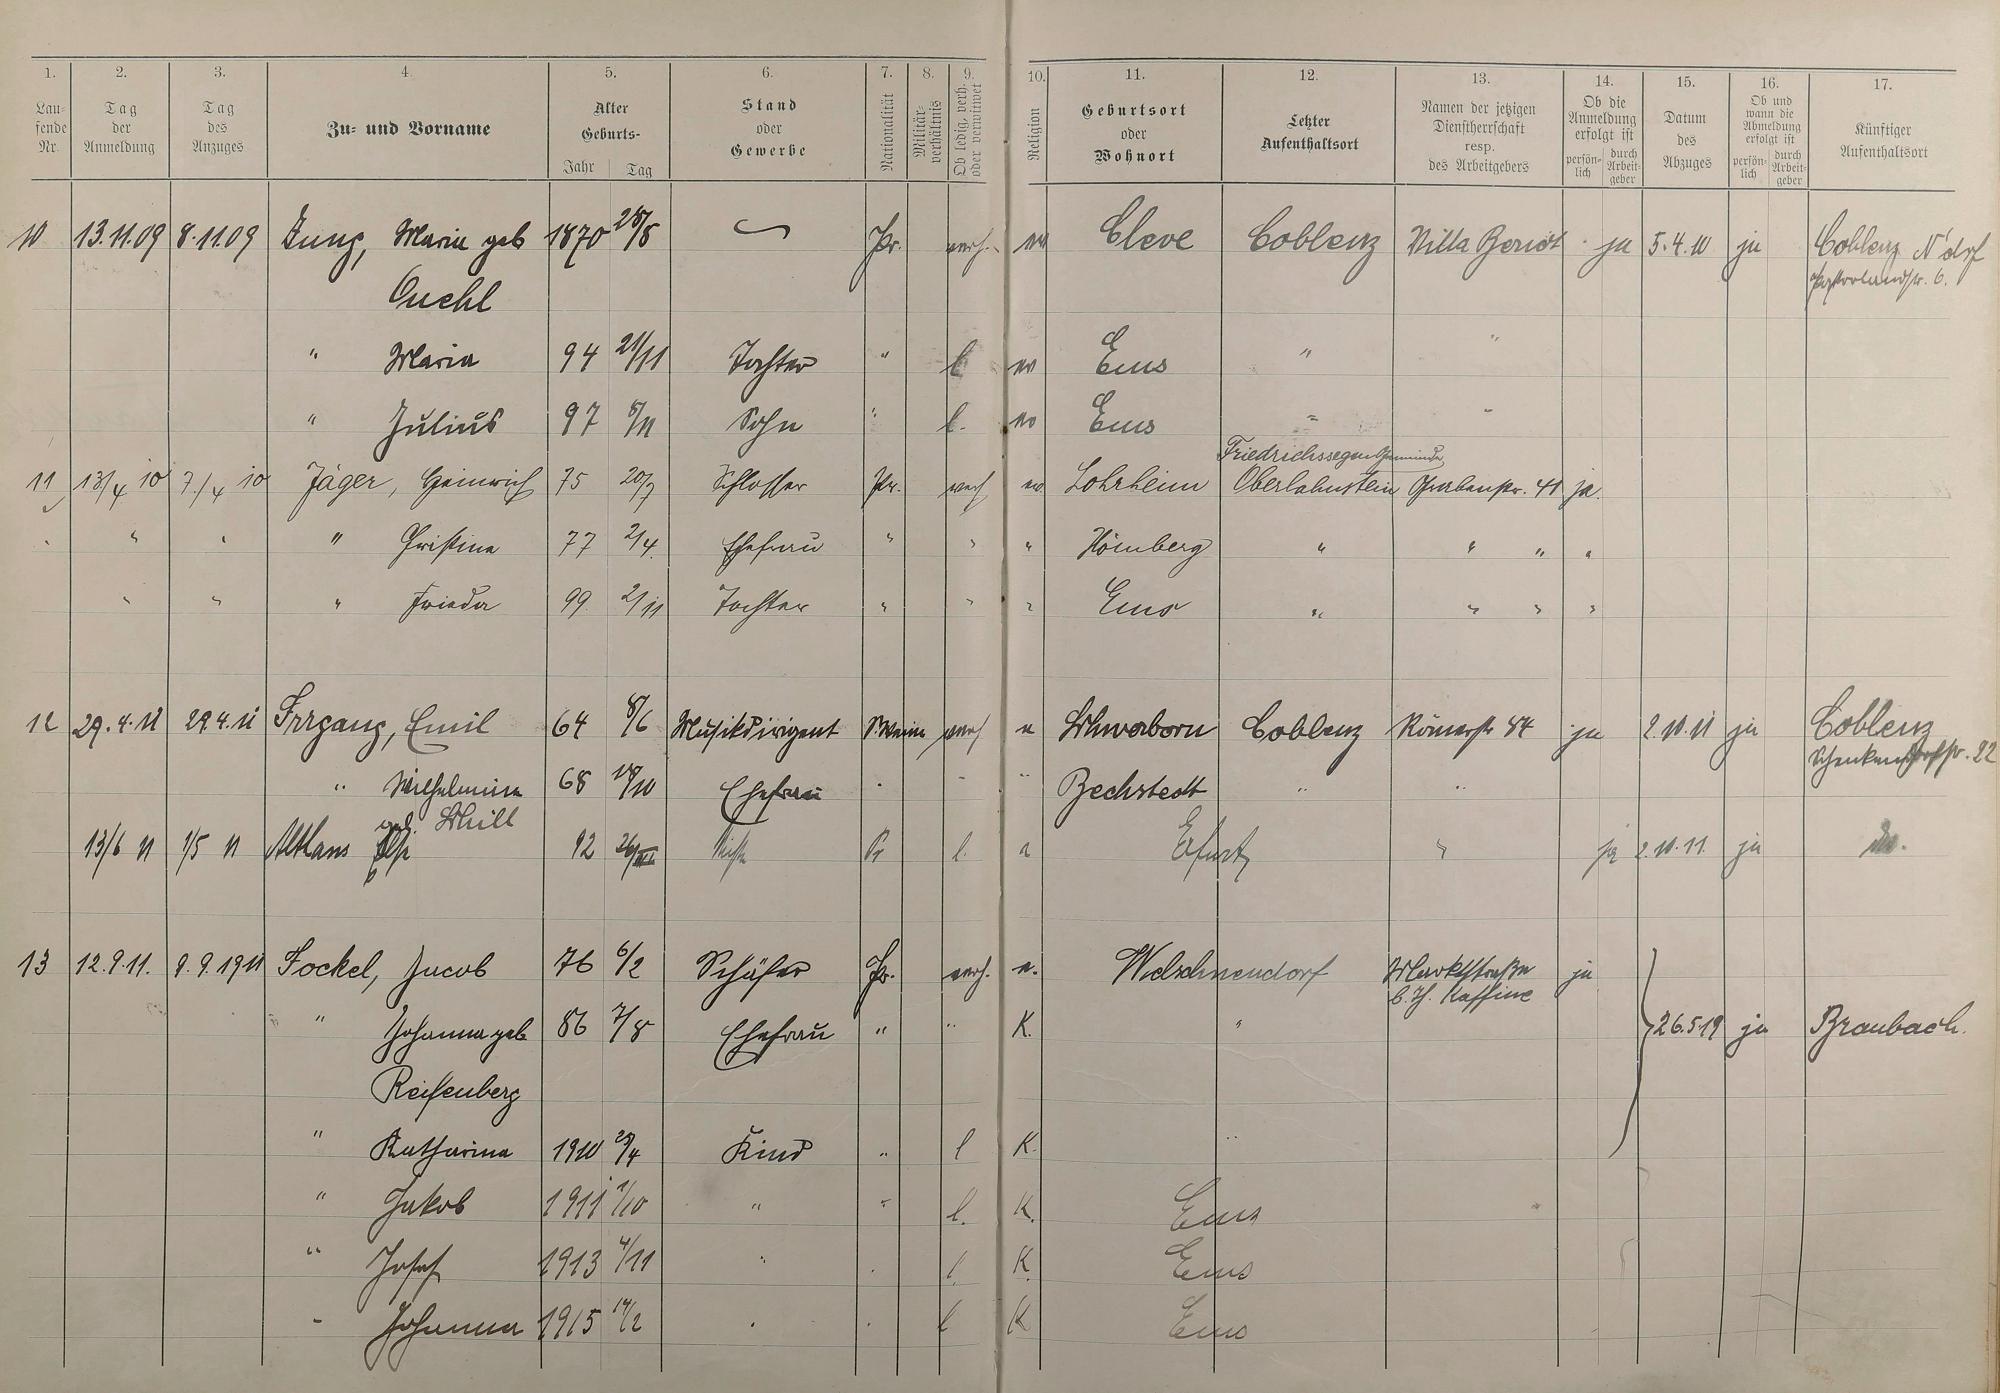 1. 2. 3. 4. 5. 6. 7. 8. 9. 10. 11. 12. 13. 14. 15. 16. 17.
Lau-
fende
Nr.
Tag
der
Anmeldung
Tag
des
Anzuges
Zu- und Vorname
Alter
Geburts-
Jahr Tag
Stand
oder
Gewerbe
Nationalität
Militär-
verhältnis
Ob ledig, verh.
oder verwitwet
Religion
Geburtsort
oder
Wohnort
Letzter
Aufenthaltsort
Namen der jetzigen
Dienstherrschaft
resp.
des Arbeitgebers
Ob die
Anmeldung
erfolgt ist
persön-
lich
durch
Arbeit-
geber
Datum
des
Abzuges
Ob und
wann die
Abmeldung
erfolgt ist
persön-
lich
durch
Arbeit-
geber
Künftiger
Aufenthaltsort
10 13.11.09 8.11.09 Jung, Maria geb 1870 28/8 Pr. verh. ev Cleve Coblenz Villa Beriot ja 5.4.10 ja Coblenz N'dorf
6.
" Maria 94 21/11 Tochter " l ev Ems " "
" Julius 97 8/11 Sohn " l. ev Ems " "
Friedrichssegen
11 13/4 10 7./4 10 Jäger, Heinrich 75 20/7 Schlosser Pr. verh ev Lohrheim Oberlahnstein Grabenstr. 41 ja.
" " " " Christine 77 2/4. Ehefrau " " " Hömberg " " " "
" " " Frieda 99 2/11 Tochter " " " Ems " " " "
12 29.4.11 29.4.11 Irrgang, Emil 64 8/6 Musikdirigent verh e Schwaborn Coblenz Römerstr 84 ja 2.10.11 ja Coblenz
Schenkendorfstr. 22
" Wilhelmine 68 18/10 Ehefrau " " " Bechstedt " "
geb. Schill
13/6 11 1/5 11 Althans Else 92 26/III Nichte Pr l. e Erfurt " ja 2.10.11. ja do.
13 12.9.11. 9.9.1911 Fockel, Jacob 76 6/2 Schäfer Pr. verh. e. Welschneudorf Marktstraße ja
b. Kaffine
" Johanna geb 86 7/8 Ehefrau " " K. " 26.5.19 ja Braubach.
Reifenberg
" Katharina 1910 28/4 Kind " l K. "
" Jakob 1911 1/10 " " l. K. Ems
" Josef 1913 4/11 " " l. K. Ems
" Johanna 1915 14/2 " " l K Ems